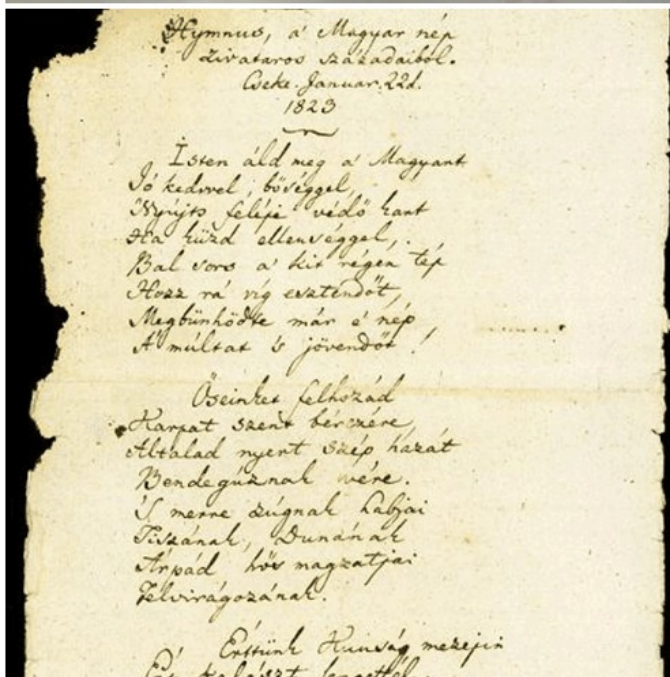 Hymnus, a' Magyar nép
zivataros századaiból.
Cseke. Januar. 22d.
1823
Isten áld meg a' Magyart
Jó kedvvel, bőséggel,
Nyújts feléje védő kart
Ha küzd ellenséggel,
Bal sors a' kit régen tép
Hozz rá víg esztendőt,
Megbűnhödte már e' nép
A' múltat 's jövendőt!
Őseinket felhozád
Karpat szent bérczére,
Által ad nyert szép hazát
Bendegúznak vére.
'S merre zúgnak habjai
Tiszának, Dunának
Árpád hős magzatjai
Felvirágozának.
Értünk Kunság mezején
Ért kalászt lengettél